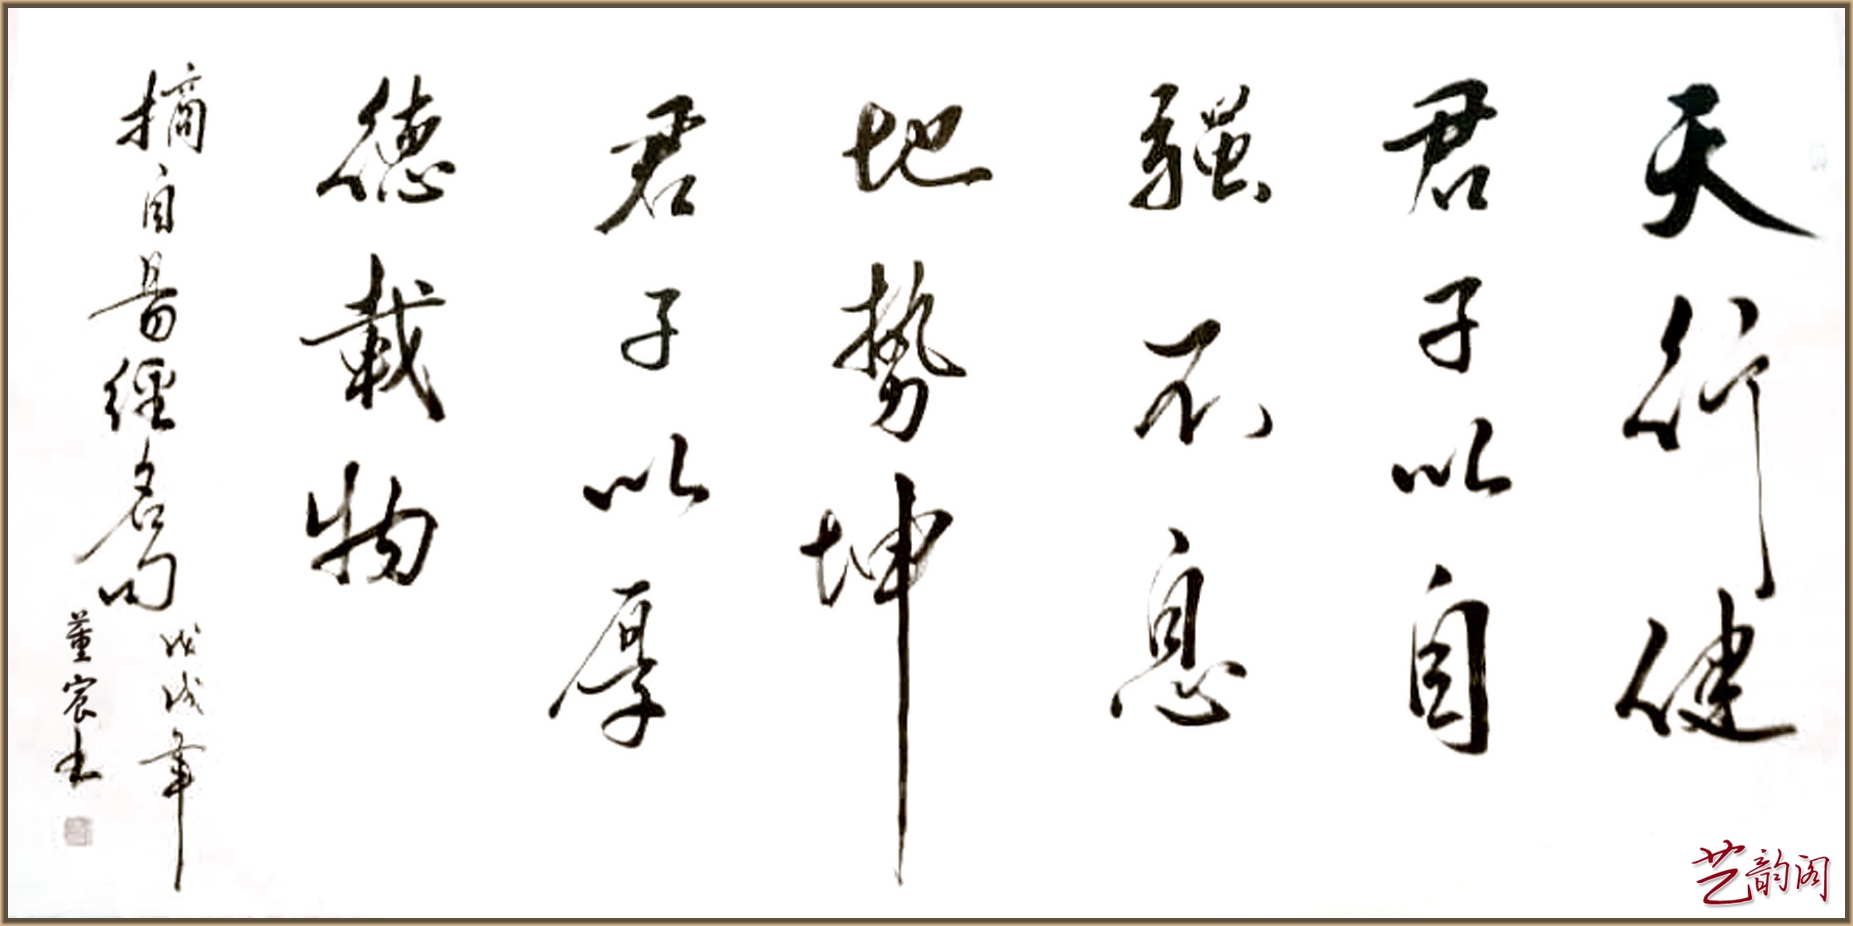 天行健
君子以自
强不息
地势坤
君子以厚
德载物
摘自易经名句
戊戌年
董宸书
艺韵阁